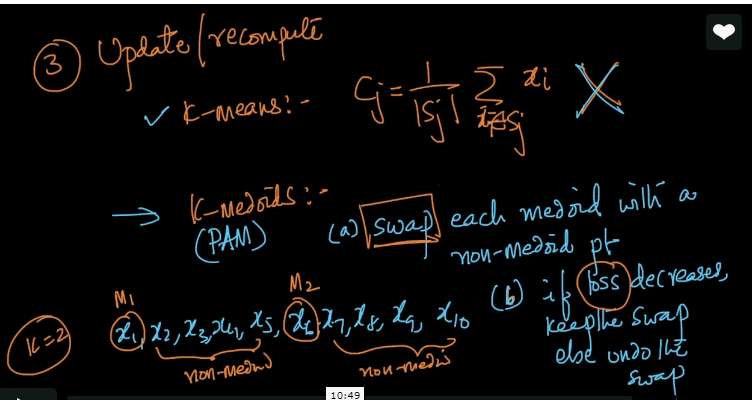 ③ Update/recompute
✓ K-means:- Cj = 1/|Sj| Σ xi∈Sj xi X
→ K-medoids:-
(PAM)
(a) swap each medoid with a
non-medoid pt
(b) if loss decreases,
keep the swap
else undo the
swap
M1 M2
K=2 x1, x2, x3, x4, x5, x6, x7, x8, x9, x10
non-medoid non-medoids
10:49